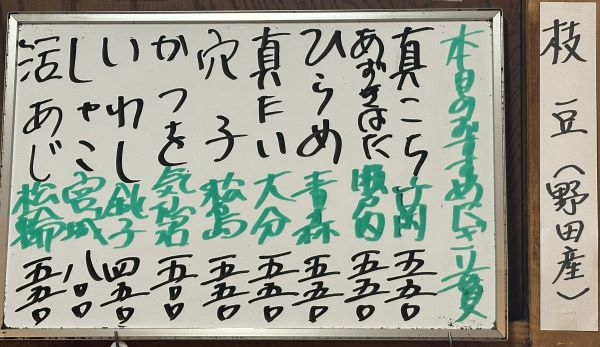 枝豆(野田産)
本日のおすすめにぎり一貫
真こち 竹岡 五五〇
あずきはた 瀬戸内 五五〇
ひらめ 青森 五五〇
真たい 大分 五五〇
穴子 松島 五五〇
かつを 気仙沼 五〇〇
いわし 銚子 四五〇
しゃこ 宮城 八〇〇
活あじ 松輪 五五〇